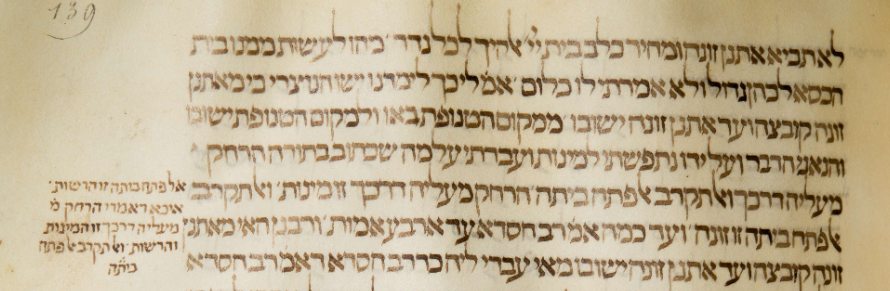 139
לא תביא אתנן זונה ומחיר כלב בבית יי׳ אלהיך לכל נדר׳ מהו לעשות ממנו בית
הכסא לכהן גדול ולא אמרתי לו כלום׳ אמ׳ לי כך לימדנו ישו הנוצרי כי מאתנן
זונה קובצה ועד אתנן זונה ישובו׳ ממקום הטנופת באו ולמקום הטנופת ישובו
והנאני הדבר ועל ידו נתפשתי למינות ועברתי על מה שכתוב בתורה הרחק
מעליה דרכך ואל תקרב אל פתח ביתה הרחק מעליה דרכך זו מינות׳ ואל תקרב
אל פתח ביתה זו זונה׳ ועד כמה אמ׳ רב חסדא עד ארבע אמות׳ ורבנן האי מאתנן
זונה קובצה ועד אתנן זונה ישובו מאי עבדי ליה כדרב חסדא דאמ׳ רב חסדא
אל פתח ביתה זו הרשות׳
איכא דאמרי הרחק מ׳
מעליה דרכך זו המינות
והרשות׳ ואל תקרב אל פתח
ביתה